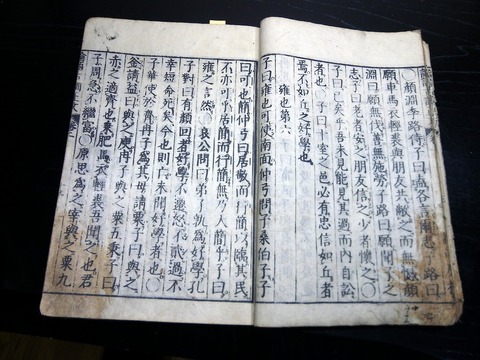 ○顔淵季路侍子曰盍各言爾志子路曰
願車馬衣輕裘與朋友共敝之而無憾顔
淵曰願無伐善無施勞子路曰願聞子之
志子曰老者安之朋友信之少者懷之○
子曰已矣乎吾未見能見其過而內自訟
者也○子曰十室之邑必有忠信如丘者
焉不如丘之好學也
雍也第六
子曰雍也可使南面仲弓問子桑伯子子
曰可也簡仲弓曰居敬而行簡以臨其民
不亦可乎居簡而行簡無乃大簡乎子曰
雍之言然○哀公問曰弟子孰爲好學孔
子對曰有顔回者好學不遷怒不貳過不
幸短命死矣今也則亡未聞好學者也○
子華使於齊冉子爲其母請粟子曰與之
釜請益曰與之庾冉子與之粟五秉子曰
赤之適齊也乘肥馬衣輕裘吾聞之也君
子周急不繼富○原思爲之宰與之粟九